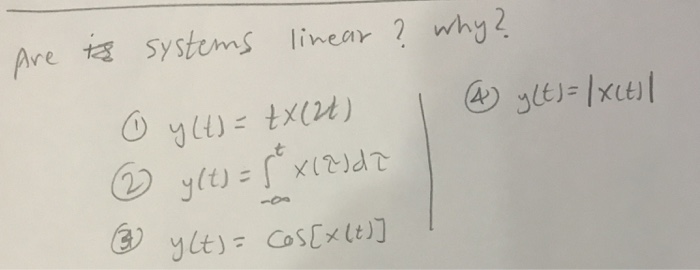 Are systems linear ? why ?
① y(t) = tx(2t)
② y(t) = ∫_{-∞}^{t} x(τ)dτ
③ y(t) = Cos[x(t)]
④ y(t) = |x(t)|